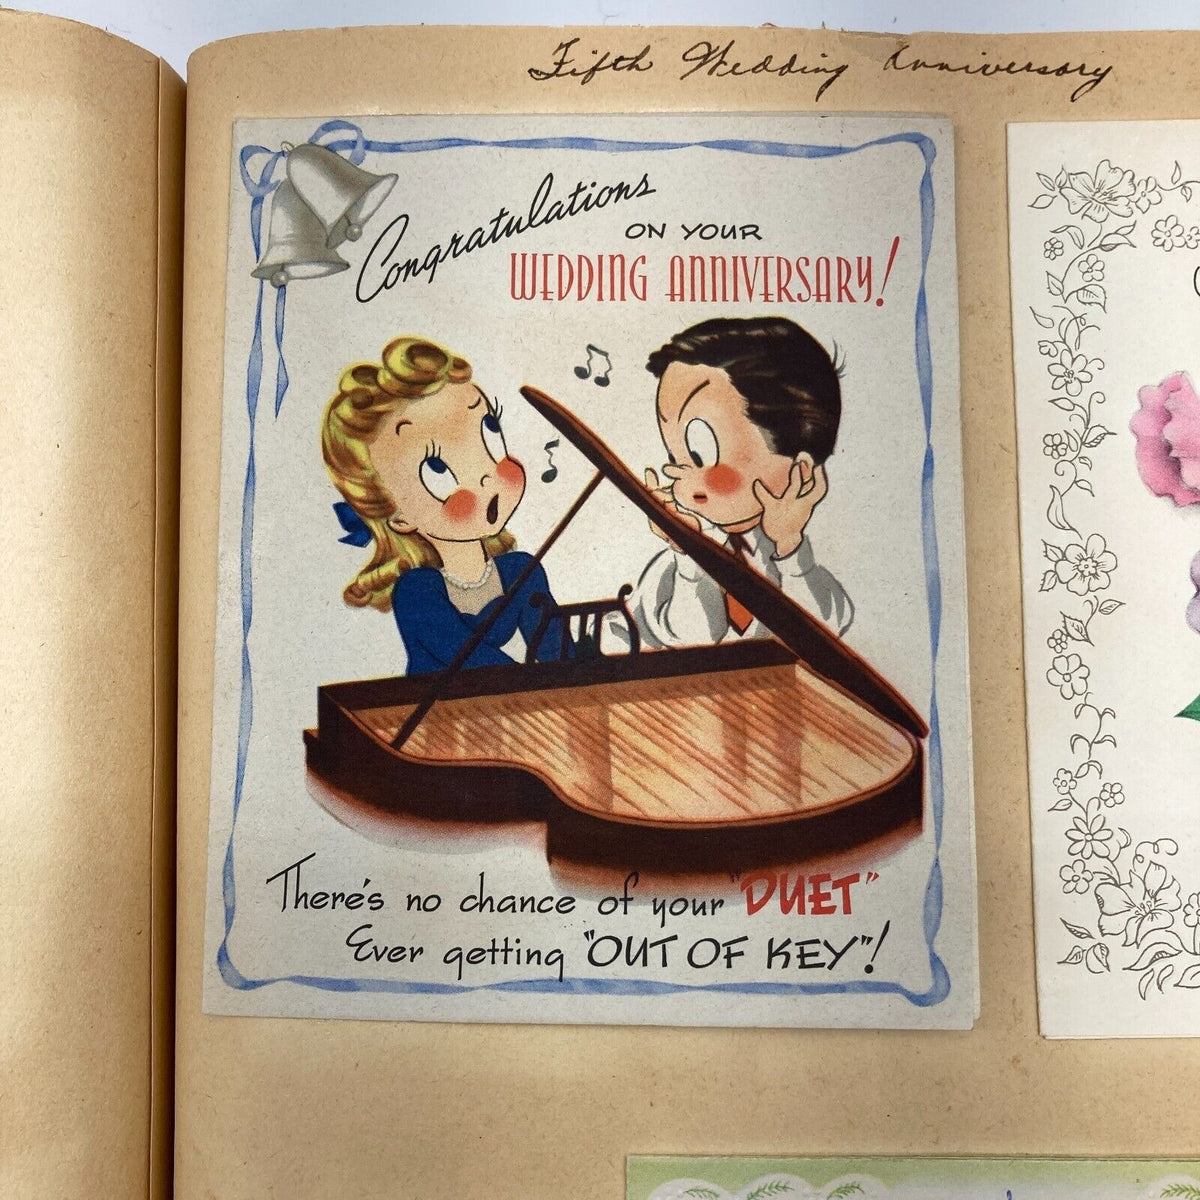 Fifth Wedding Anniversary
Congratulations
ON YOUR
WEDDING ANNIVERSARY!
There's no chance of your "DUET"
Ever getting "OUT OF KEY"!